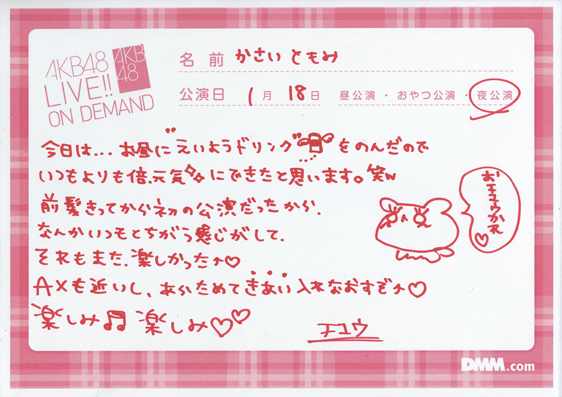 AKB48
LIVE!!
ON DEMAND
AKB
48
名前 かさい ともみ
公演日 1月 18日 昼公演・おやつ公演・夜公演
今日は...お昼に"えいようドリンク"をのんだので
いつもよりも倍元気にできたと思います。笑w
前髪きってから初の公演だったから、
なんかいつもとちがう感じがして、
それもまた、楽しかった♪♡
AXも近いし、あらためてきあい入れなおすぞ♪♡
楽しみ♫ 楽しみ♡♡
チユウ
おチユウかれ♡
DMM.com